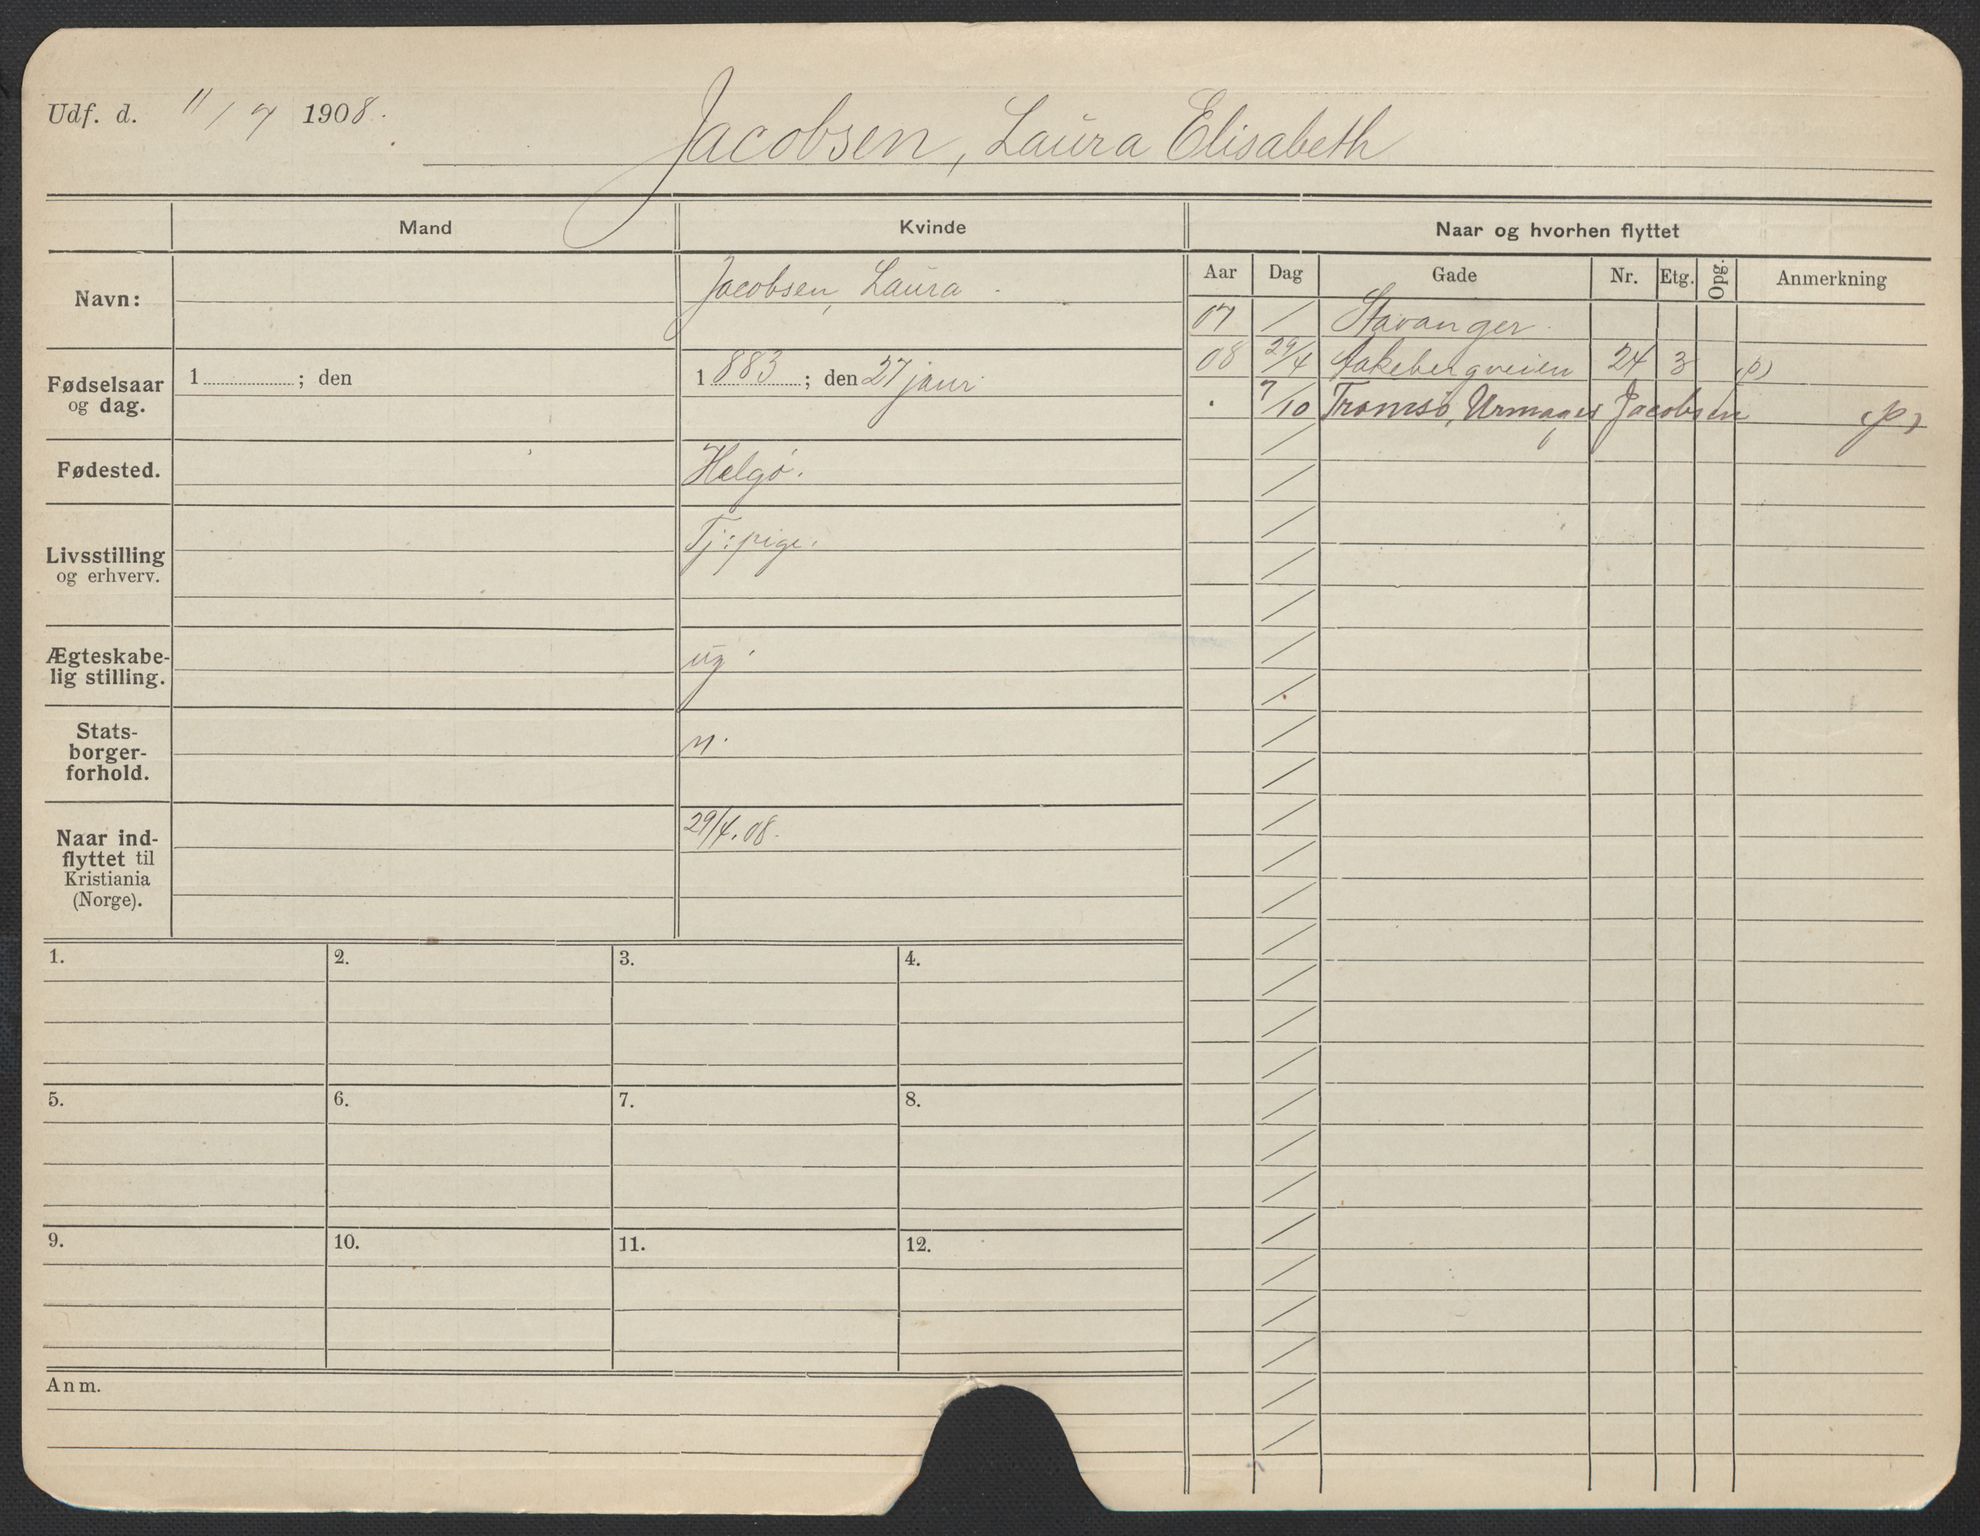 Udf. d. 11/7 1908.
Jacobsen, Laura Elisabeth
Mand
Kvinde
Naar og hvorhen flyttet
Navn:
Jacobsen, Laura
Aar Dag Gade Nr. Etg. Opg. Anmerkning
07 / Stavanger
08 29/4 Aakebergveien 24 3 (p)
7/10 Tromsø, Urmager Jacobsen (p)
Fødselsaar
og dag.
1 ; den
1 883 ; den 27 janr.
Fødested.
Helgø.
Livsstilling
og erhverv.
Tj: pige.
Ægteskabe-
lig stilling.
ug
Stats-
borger-
forhold.
n.
Naar ind-
flyttet til
Kristiania
(Norge).
29/4.08.
1. 2. 3. 4.
5. 6. 7. 8.
9. 10. 11. 12.
Anm.